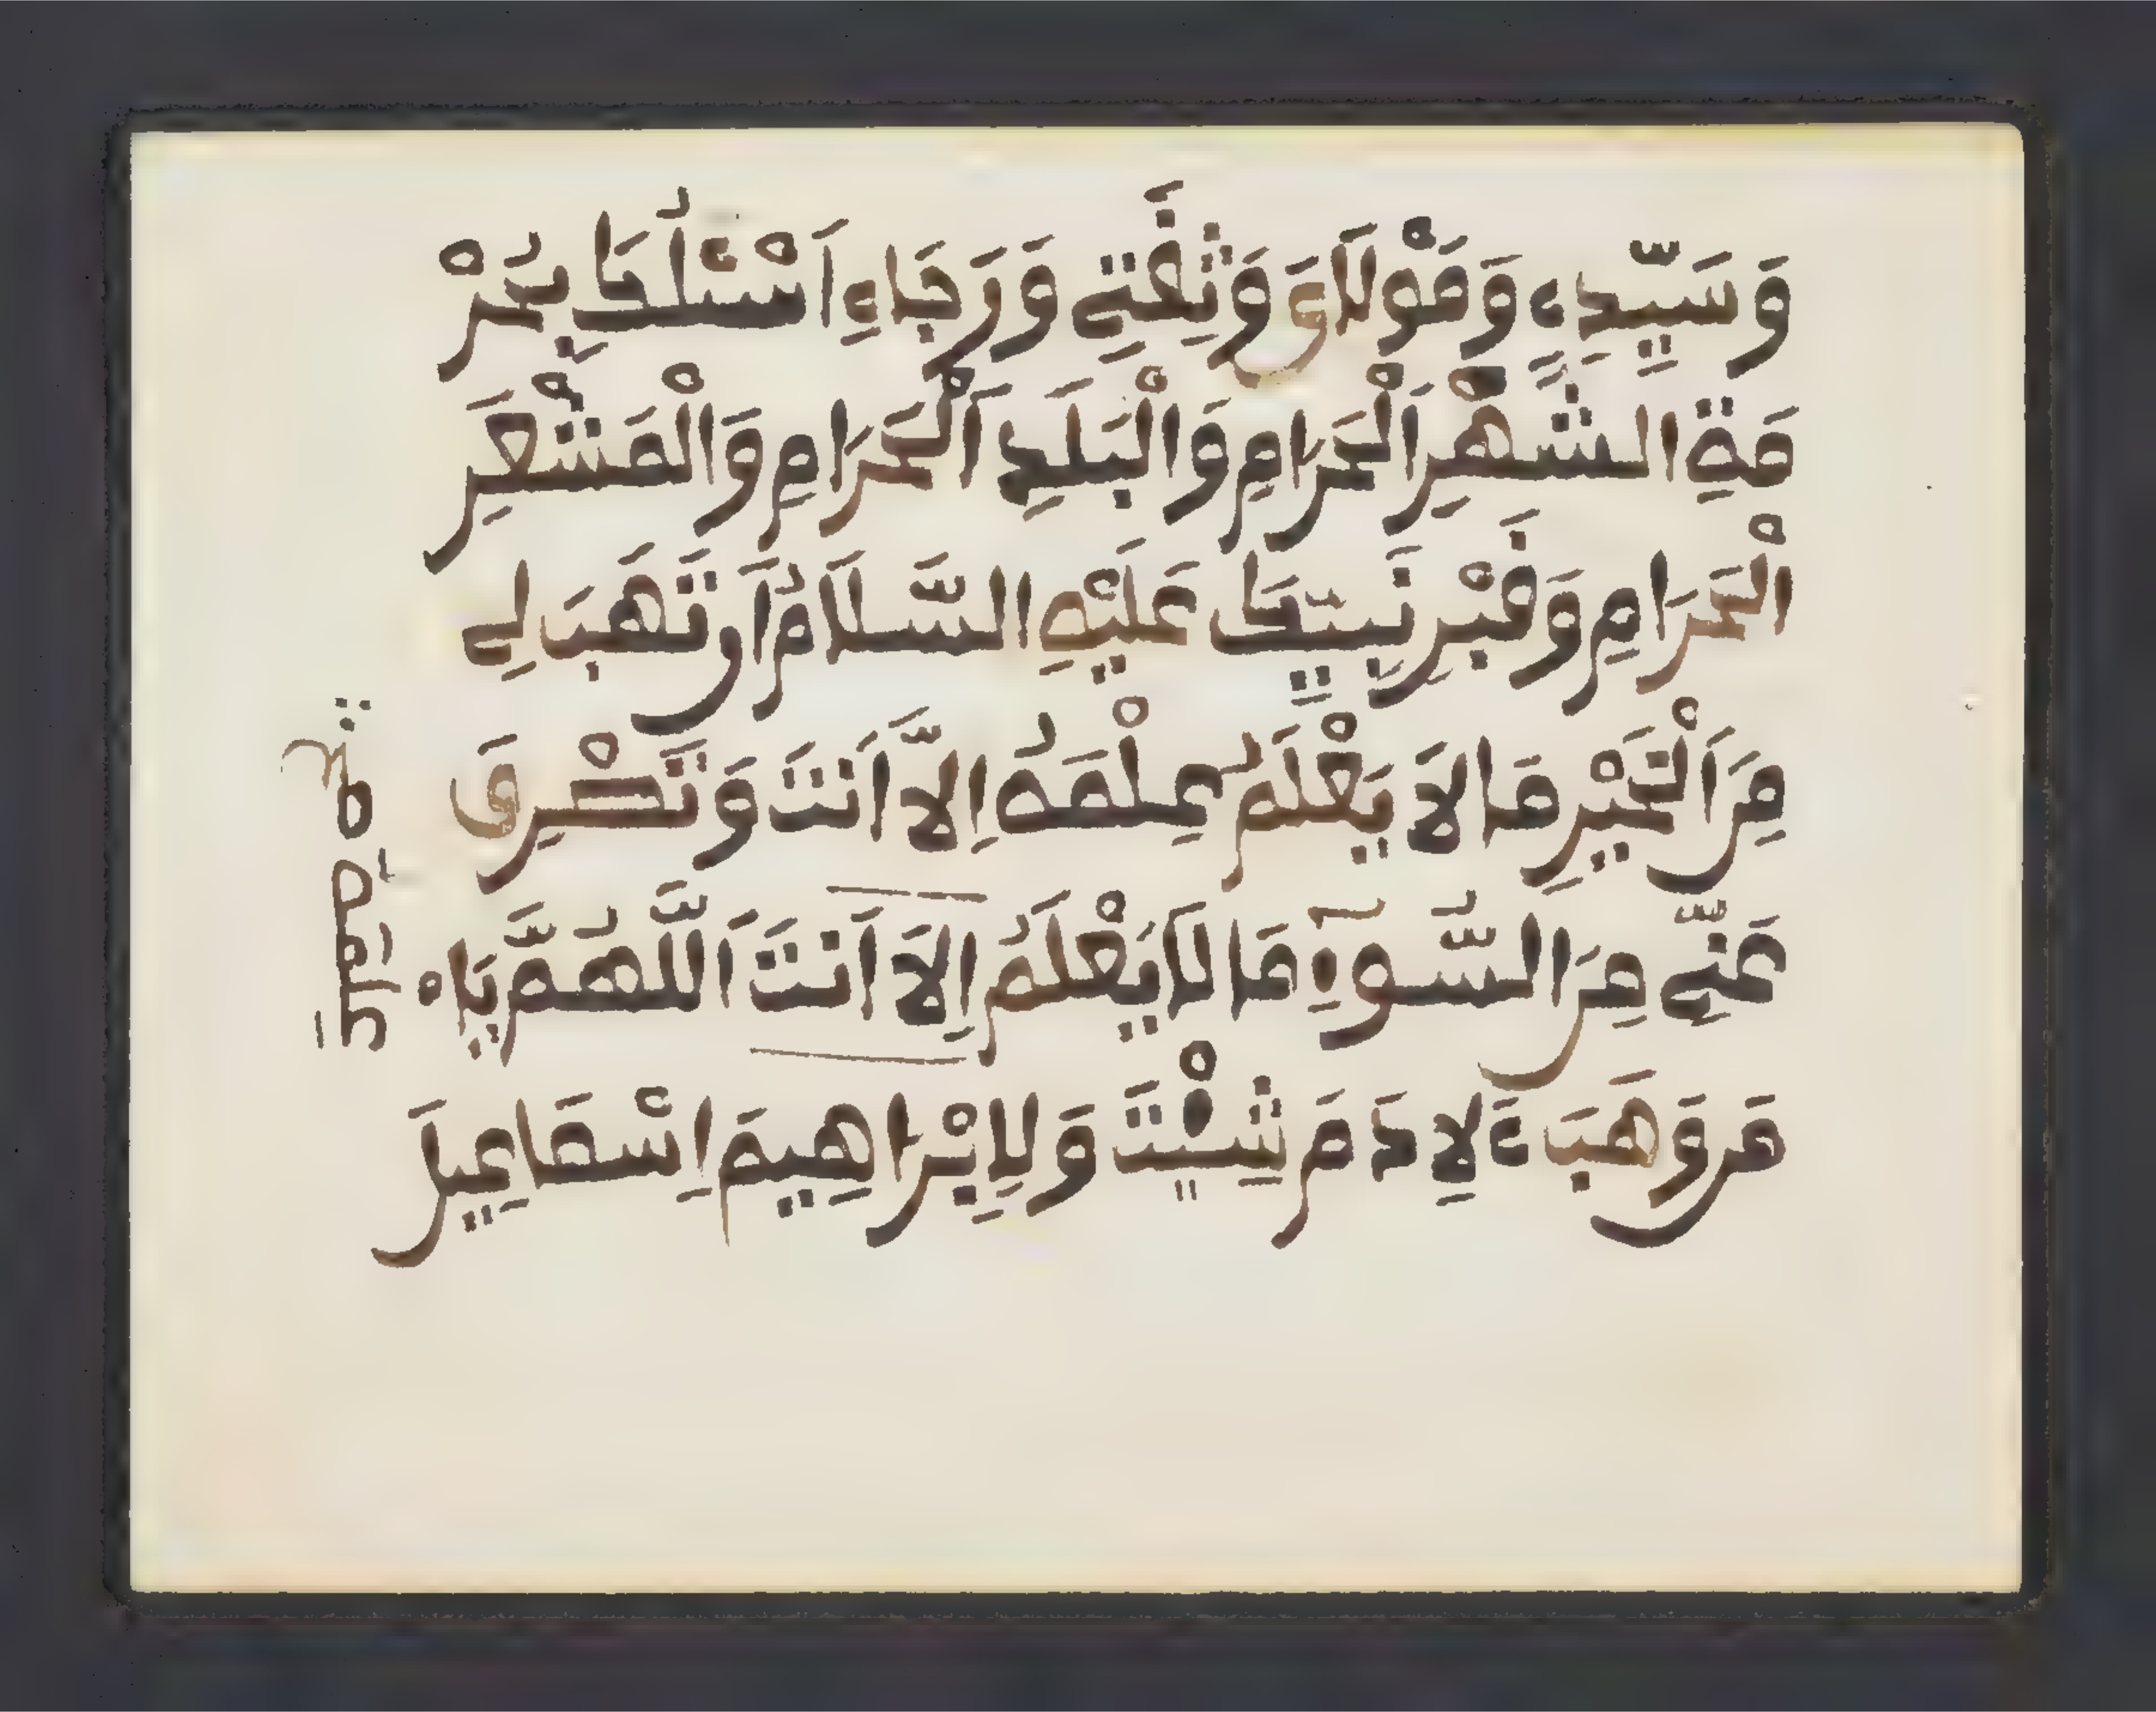 وَسَيِّدِے وَمَوْلَایَ وَثِقَتِے وَرَجَاءِے اَسْئَلُكَ بِحُرْ
مَةِ الشَّهْرِ الْحَرَامِ وَالْبَلَدِ الْحَرَامِ وَالْمَشْعَرِ
الْحَرَامِ وَقَبْرِ نَبِيِّكَ عَلَيْهِ السَّلَامُ اَن تَهَبَ لِے
مِنَ الْخَيْرِ مَا لَا يَعْلَمُ عِلْمَهُ اِلَّا اَنتَ وَتَصْرِفَ
عَنِّے مِنَ السُّوٓءِ مَا لَا يَعْلَمُ اِلَّا اَنتَ اَللَّهُمَّ يَا
مَن وَهَبَ ءَلِادَمَ شِيْثَ وَلِإِبْرَاهِيمَ اِسْمَاعِيلَ